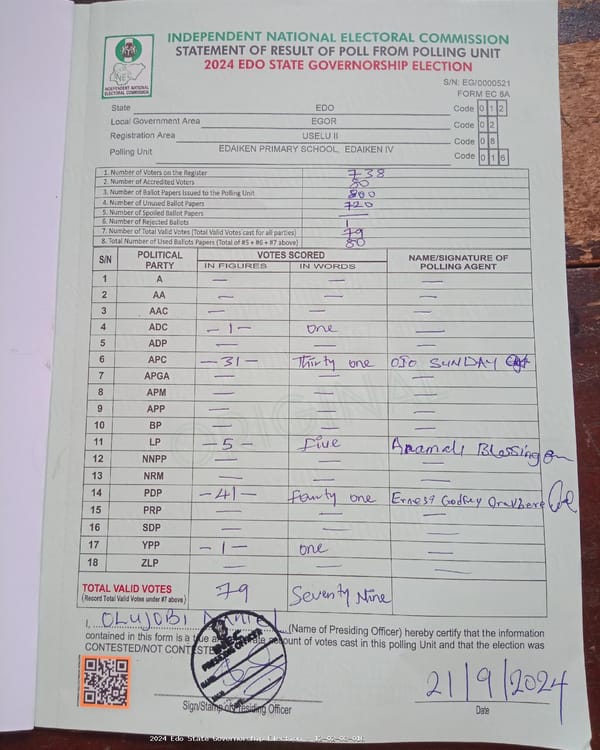 INDEPENDENT NATIONAL ELECTORAL COMMISSION
STATEMENT OF RESULT OF POLL FROM POLLING UNIT
2024 EDO STATE GOVERNORSHIP ELECTION
INEC
INDEPENDENT NATIONAL
ELECTORAL COMMISSION
S/N: EG/0000521
FORM EC 8A
State EDO Code 0 1 2
Local Government Area EGOR Code 0 2
Registration Area USELU II Code 0 8
Polling Unit EDAIKEN PRIMARY SCHOOL, EDAIKEN IV Code 0 1 6
1. Number of Voters on the Register 738
2. Number of Accredited Voters 80
3. Number of Ballot Papers Issued to the Polling Unit 800
4. Number of Unused Ballot Papers 720
5. Number of Spoiled Ballot Papers —
6. Number of Rejected Ballots 1
7. Number of Total Valid Votes (Total Valid Votes cast for all parties) 79
8. Total Number of Used Ballots Papers (Total of #5 + #6 + #7 above) 80
S/N POLITICAL PARTY VOTES SCORED NAME/SIGNATURE OF POLLING AGENT
IN FIGURES IN WORDS
1 A — — —
2 AA — — —
3 AAC — — —
4 ADC -1- one —
5 ADP — — —
6 APC -31- Thirty one OJO SUNDAY
7 APGA — — —
8 APM — — —
9 APP — — —
10 BP — — —
11 LP -5- Five Blessing
12 NNPP — — —
13 NRM — — —
14 PDP -41- Fourty one Ernest Godfrey
15 PRP — — —
16 SDP — — —
17 YPP -1- one —
18 ZLP — — —
TOTAL VALID VOTES 79 Seventy Nine
(Record Total Valid Votes under #7 above)
I, OLUJOBI (Name of Presiding Officer) hereby certify that the information
contained in this form is a true account of votes cast in this polling Unit and that the election was
CONTESTED/NOT CONTESTED
21/9/2024
Sign/Stamp of Presiding Officer Date
2024 Edo State Governorship Election